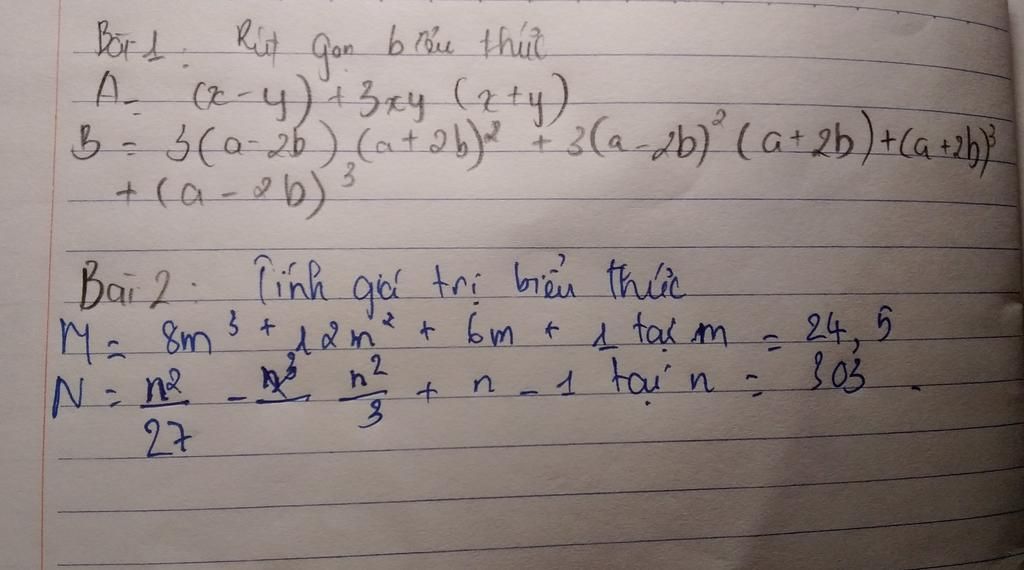 Bài 1: Rút gọn biểu thức
A = (x - y) + 3xy (x + y)
B = 3(a - 2b) (a + 2b)² + 3(a - 2b)² (a + 2b) + (a + 2b)³
+ (a - 2b)³
Bài 2: Tính giá trị biểu thức
M = 8m³ + 12m² + 6m + 1 tại m = 24,5
N = n²/27 - n²/3 + n - 1 tại n = 303.